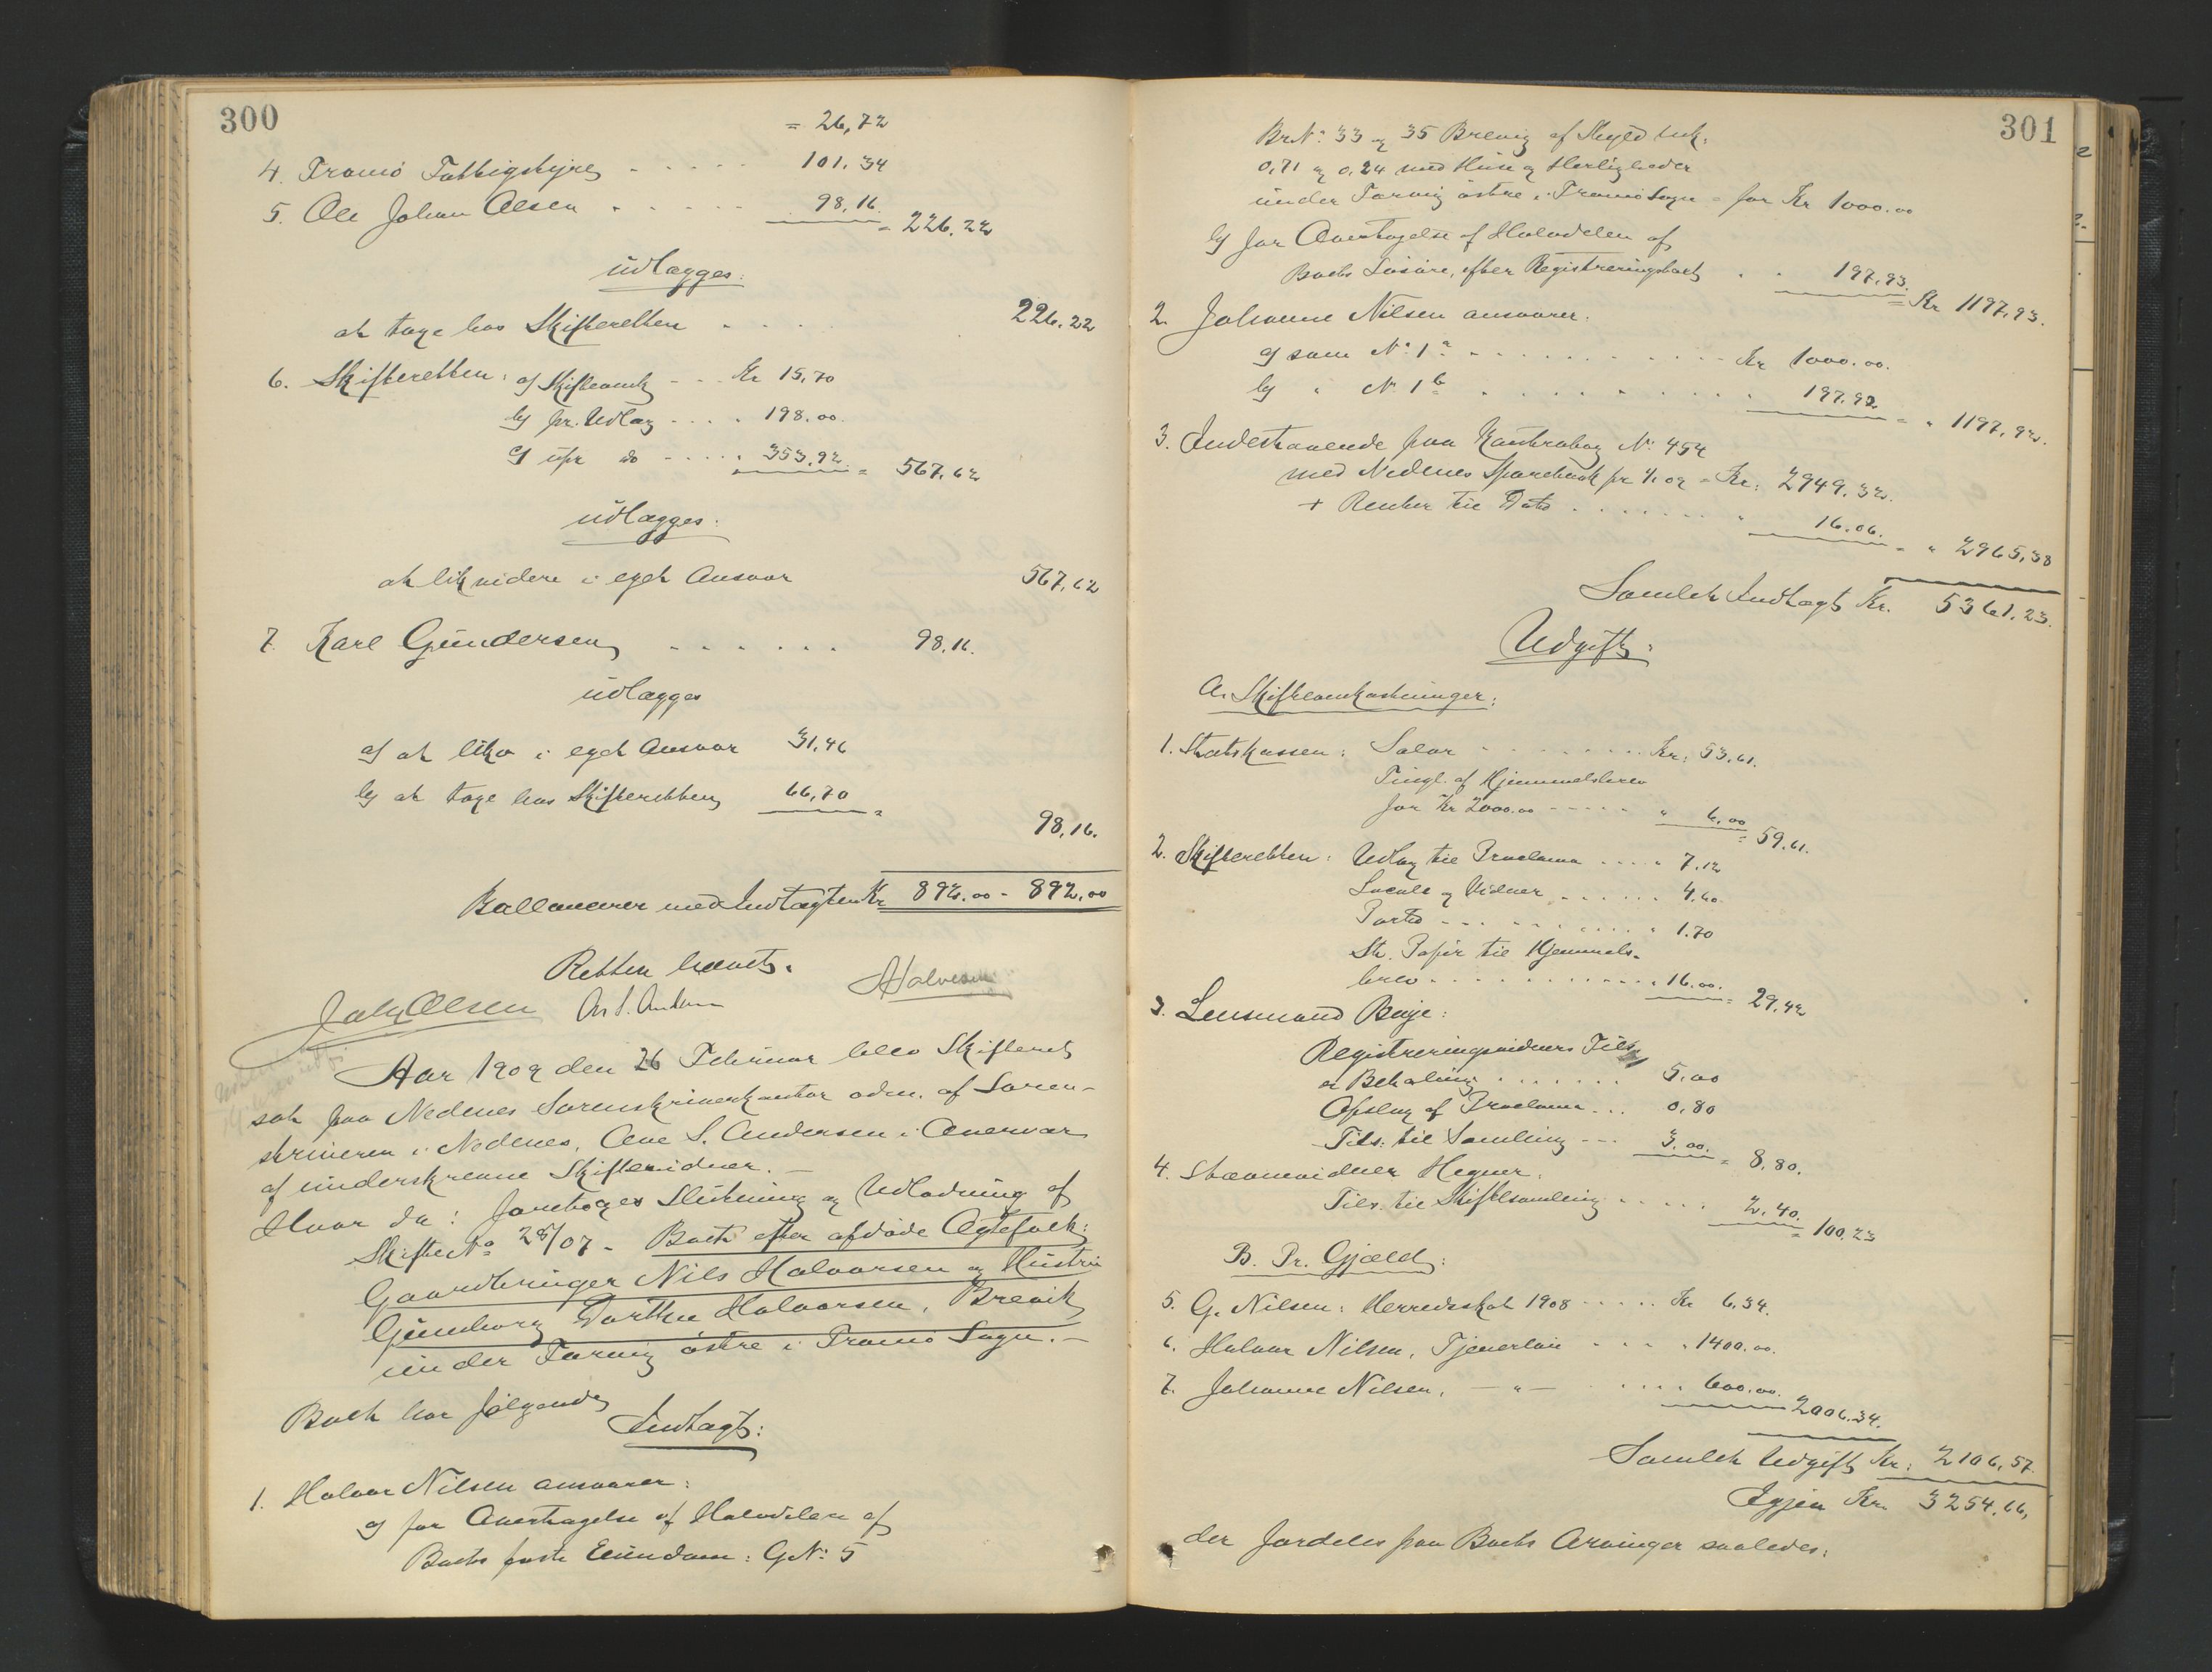 300
= 26,72
4. Tromö Fattigstyre - - - - 101.34
5. Ole Johan Olsen - - - - 98,16. = 226.22
udlægges:
at tage hos Skifteretten - - - - 226.22
6. Skifteretten: a) Skifteomk - - Kr 15,70
b) pr. Udlæg - - - - 198.00.
c) upr do - - - - 353,92 = 567,62
udlægges:
at likvidere i eget Ansvar 567,62
7. Karl Gundersen - - - - - - 98.16.
udlægges
a) at likv i eget Ansvar 31,46
b) at tage hos Skifteretten 66,70 =
98,16.
Ballancerer med Indtægten Kr 892.00 - 892,00
Retten hævet.
Joh Olsen As S. Andersen Halvorsen
Aar 1909 den 26 Februar blev Skifteret
sat paa Nedenes Sorenskriverkontor adm. af Soren-
skriveren i Nedenes, Aue S. Andersen i Overvær
af underskrevne Skiftevidner. -
Hvor da: foretoges Slutning og Udlodning af
Skifte No 28/07 - Boet efter afdöde Ægtefolk:
Gaardbruger Nils Halvorsen og Hustru
Gunborg Dorthea Halvorsen, Brevik
under Færvig östre i Tromö Sogn. -
Boet har fölgende
Indtægt:
1. Halvor Nilsen ansvarer:
a) for Overtagelse af Halvdelen af
Boets faste Eiendom: G.No: 5
301
Br.No: 33 og 35 Brevig af Skyld mk:
0,71 og 0,24 med Huse og Herligheder
under Færvig östre i Tromö Sogn = for Kr 1000.00
b) for Overtagelse af Halvdelen af
Boets Lösöre, efter Registreringsboet - - 197,93. = Kr 1197,93.
2. Johanne Nilsen ansvarer:
a) som No: 1 a - - - - - - - - Kr 1000.00.
b) " No 1 b - - - - - - - - 197.92 = " 1197,92.
3. Indestaaende paa Kontrabog No: 454
med Nedenes Sparebank pr 1/1 09 = Kr: 2949.32.
+ Renter til Dato - - - - - - " 16.06. = " 2965,38
Samlet Indtægt Kr. 5361.23.
Udgift:
A. Skifteomkostninger:
1. Statskassen: Salær - - - - - - Kr: 53,61.
Tingl. af Hjemmelsbrev
for Kr 2000.00 - - - - - " 6,00 = 59,61.
2. Skifteretten: Udlæg til Proclama - - - - 7.12
Locale og Vidner - - - - - - 4.60.
Porto - - - - - - - - 1.70
St. Papir til Hjemmels-
brev - - - - - - - - - - 16.00. = 29,42
3. Lensmand Boije:
Registreringsvidners Tils.
og Betaling - - - - - - 5.00
Opslag af Proclama - - - 0,80
Tils: til Samling - - - 3.00. = 8,80.
4. Stævnevidner Hegner:
Tils. til Skiftesamling - - - - - 2,40. = 100,23
B. Pr. Gjæld:
5. G. Nilsen: Herredsskat 1908 - - - - - Kr 6,34.
6. Halvor Nilsen, Tjenerlön - - - - " 1400.00.
7. Johanne Nilsen, - " - - - - - 600.00. 2006.34.
Samlet Udgift Kr: 2106,57.
Igjen Kr. 3254,66,
der fordeles paa Boets Arvinger saaledes: